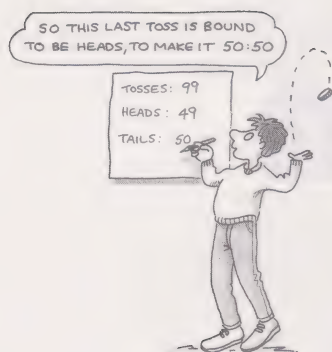 SO THIS LAST TOSS IS BOUND
TO BE HEADS, TO MAKE IT 50:50
TOSSES: 99
HEADS: 49
TAILS: 50